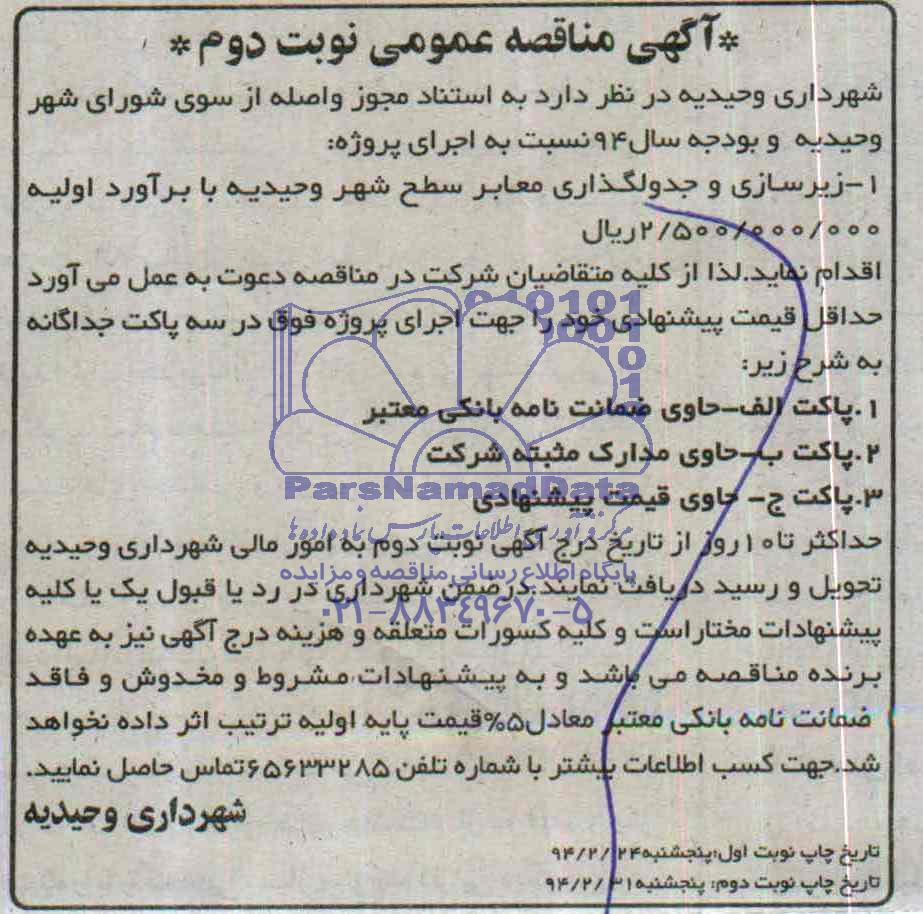 *آگهی مناقصه عمومی نوبت دوم *
شهرداری وحیدیه در نظر دارد به استناد مجوز واصله از سوی شورای شهر
وحیدیه و بودجه سال ۹۴ نسبت به اجرای پروژه:
۱-زیرسازی و جدولگذاری معابر سطح شهر وحیدیه با برآورد اولیه
۲/۵۰۰/۰۰۰/۰۰۰ ریال
اقدام نماید.لذا از کلیه متقاضیان شرکت در مناقصه دعوت به عمل می آورد
حداقل قیمت پیشنهادی خود را جهت اجرای پروژه فوق در سه پاکت جداگانه
به شرح زیر:
۱.پاکت الف-حاوی ضمانت نامه بانکی معتبر
۲.پاکت ب-حاوی مدارک مثبته شرکت
۳.پاکت ج- حاوی قیمت پیشنهادی
حداکثر تا ۱۰ روز از تاریخ درج آگهی نوبت دوم به امور مالی شهرداری وحیدیه
تحویل و رسید دریافت نمایند.درضمن شهرداری در رد یا قبول یک یا کلیه
پیشنهادات مختار است و کلیه کسورات متعلقه و هزینه درج آگهی نیز به عهده
برنده مناقصه می باشد و به پیشنهادات مشروط و مخدوش و فاقد
ضمانت نامه بانکی معتبر معادل ۵% قیمت پایه اولیه ترتیب اثر داده نخواهد
شد.جهت کسب اطلاعات بیشتر با شماره تلفن ۶۵۶۳۳۲۸۵ تماس حاصل نمایید.
شهرداری وحیدیه
تاریخ چاپ نوبت اول:پنجشنبه ۹۴/۲/۲۴
تاریخ چاپ نوبت دوم: پنجشنبه ۹۴/۲/۳۱
ParsNamadData
مرکز فرآوری اطلاعات پارس نماد داده ها
پایگاه اطلاع رسانی مناقصه و مزایده
۰۲۱-۸۸۳۴۹۶۷۰-۵